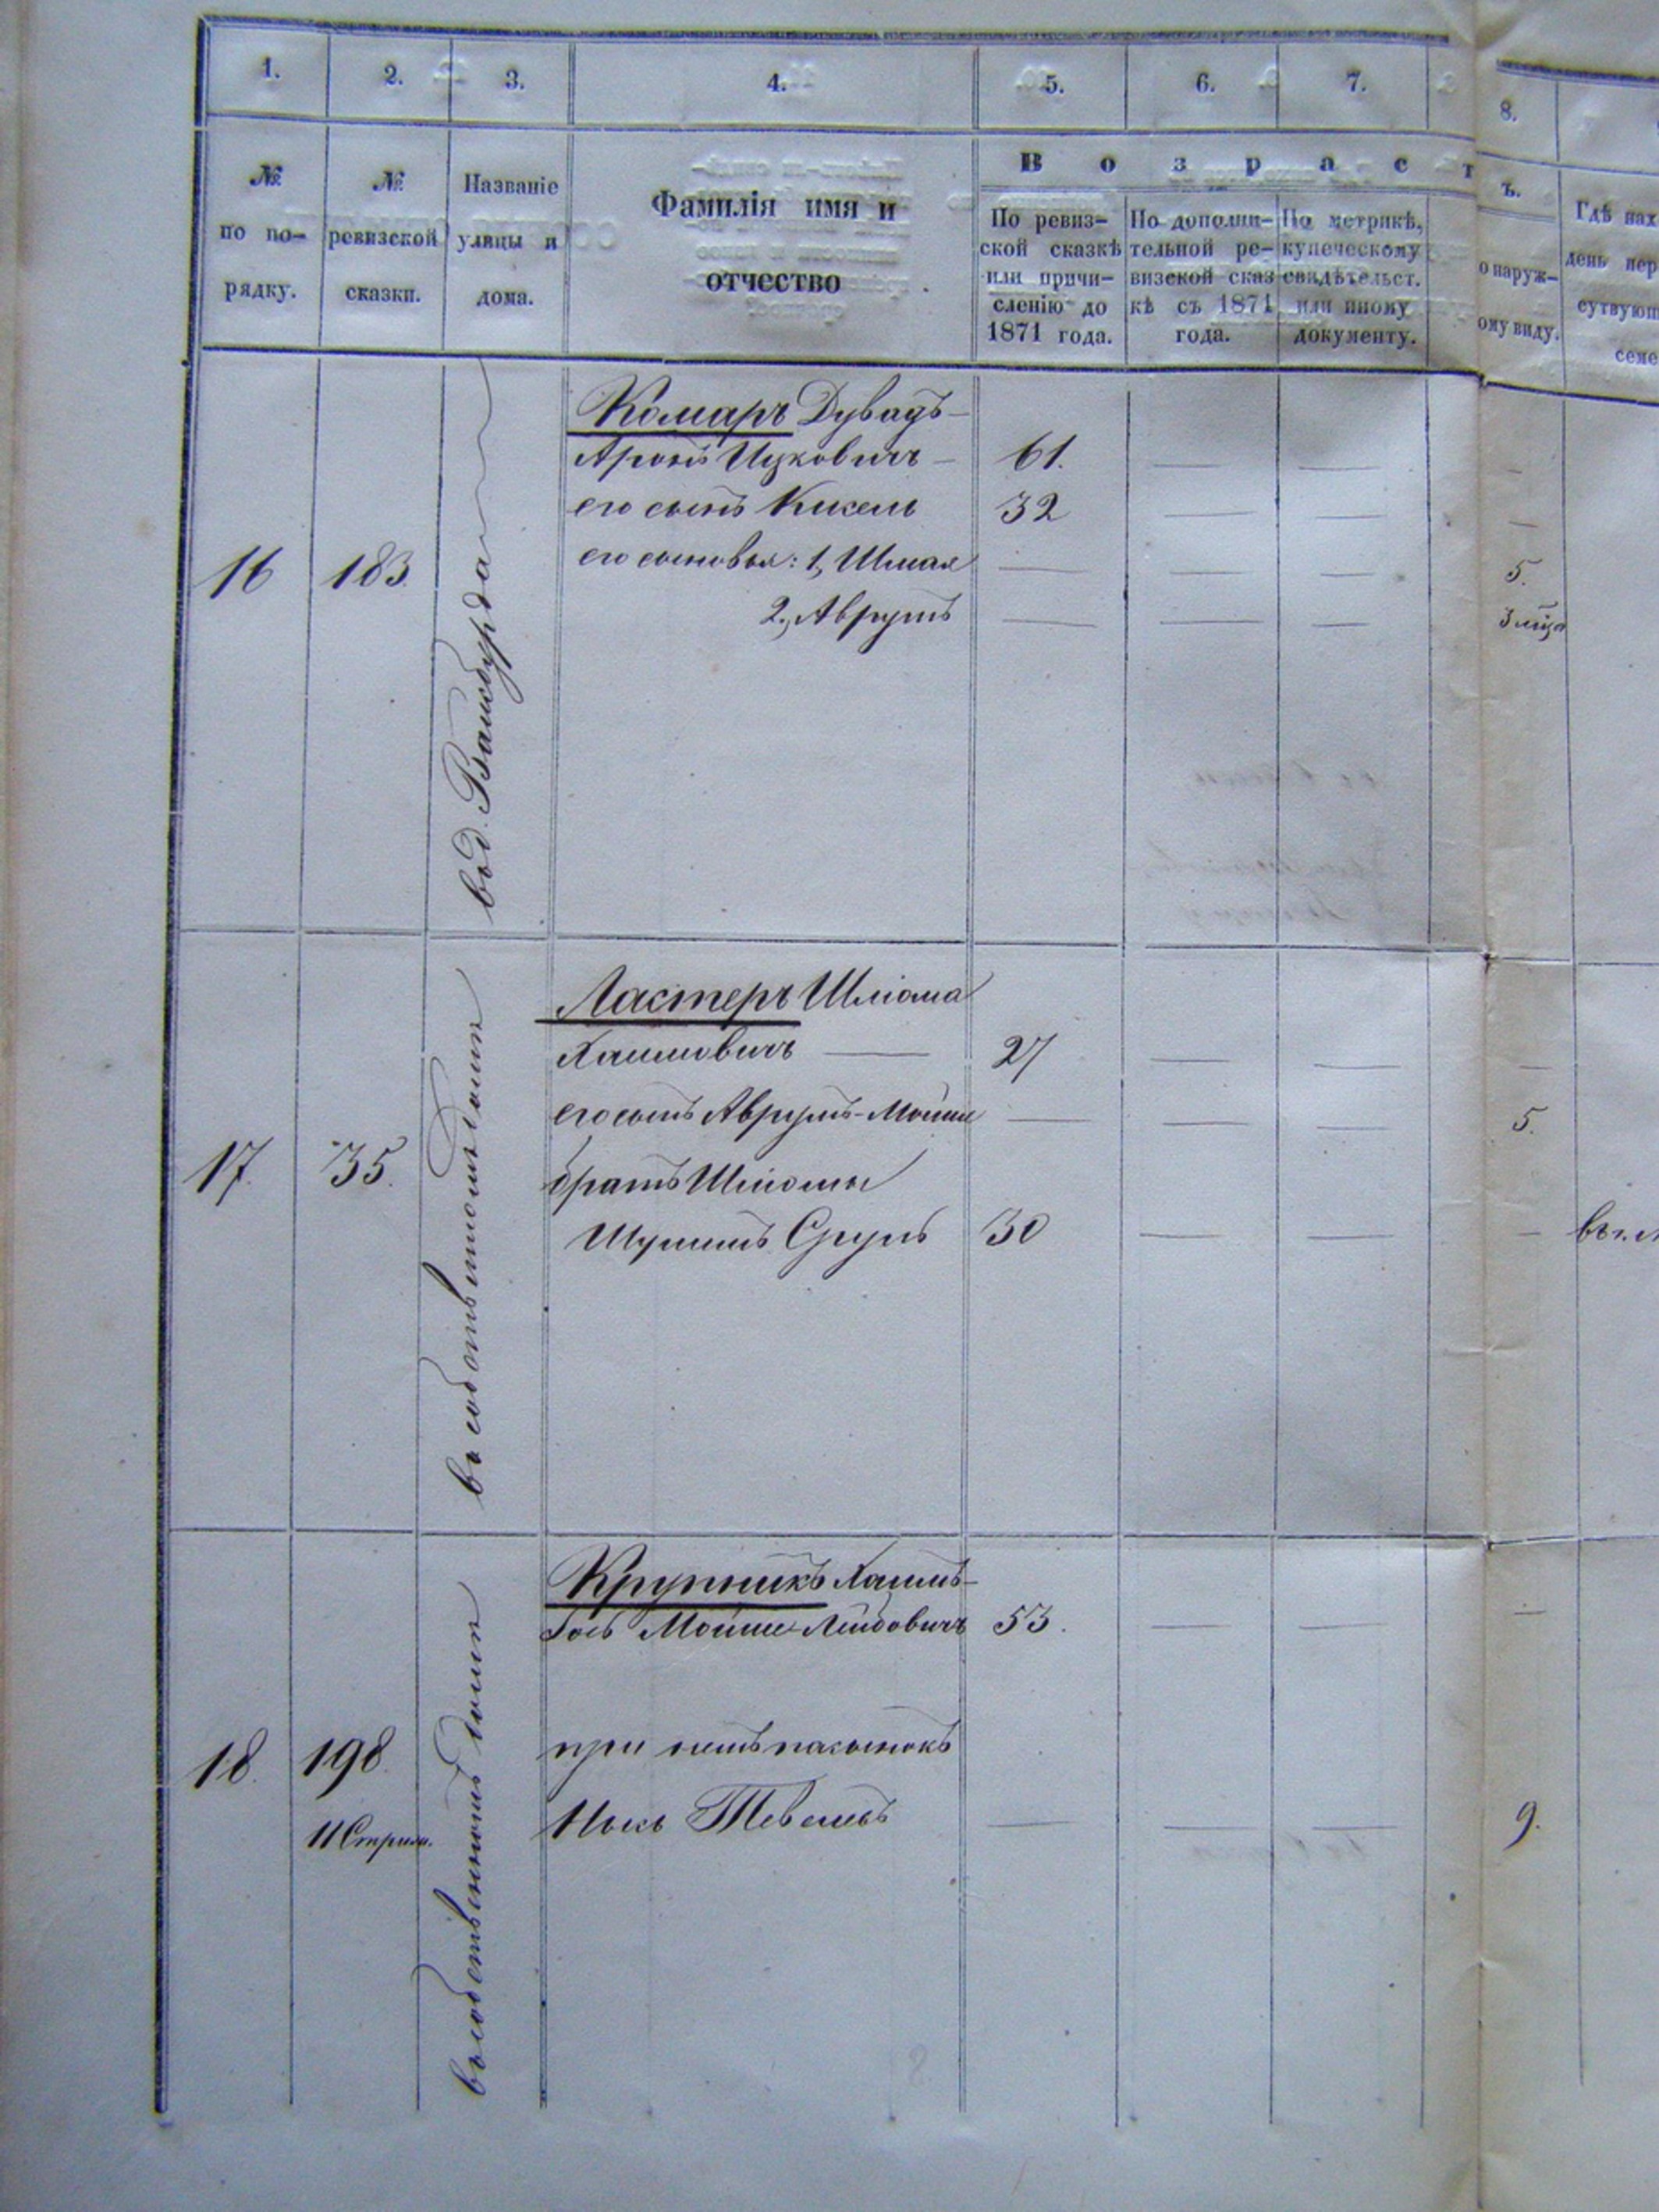 1. 2. 3. 4. 5. 6. 7. 8.
№ по по- рядку.
№ ревизской сказки.
Названіе улицы и дома.
Фамилія имя и
отчество
В о з р а с т
ъ.
По ревиз-
ской сказкѣ
или причи-
сленію до
1871 года.
По дополни-
тельной ре-
визской сказ
кѣ съ 1871
года.
По метрикѣ,
купеческому
свидѣтельст.
или иному
документу.
о наруж-
ому виду.
Гдѣ нах
день пер
сутвующ
семе
16 183.
в д. Ваисбурда
Комаръ Дувадъ-
Аронъ Ицковичъ 61. — —
его сынъ Кисель 32 — —
его сыновья: 1, Шмая — — — 5.
2, Аврумъ — — — 3 мѣц
17. 35.
въ собственномъ домѣ
Ластеръ Шліома
Хаимовичъ — 27 — —
его сынъ Аврумъ-Мойше — — — 5.
братъ Шліомы
Шулимъ Сруль 30 — — —
18. 198.
11 Стрил.
въ собственномъ домѣ
Крупникъ Хаимъ-
Мойше-Лейбовичъ 53. — — —
при немъ пасынокъ
Тевелевъ — — — 9.